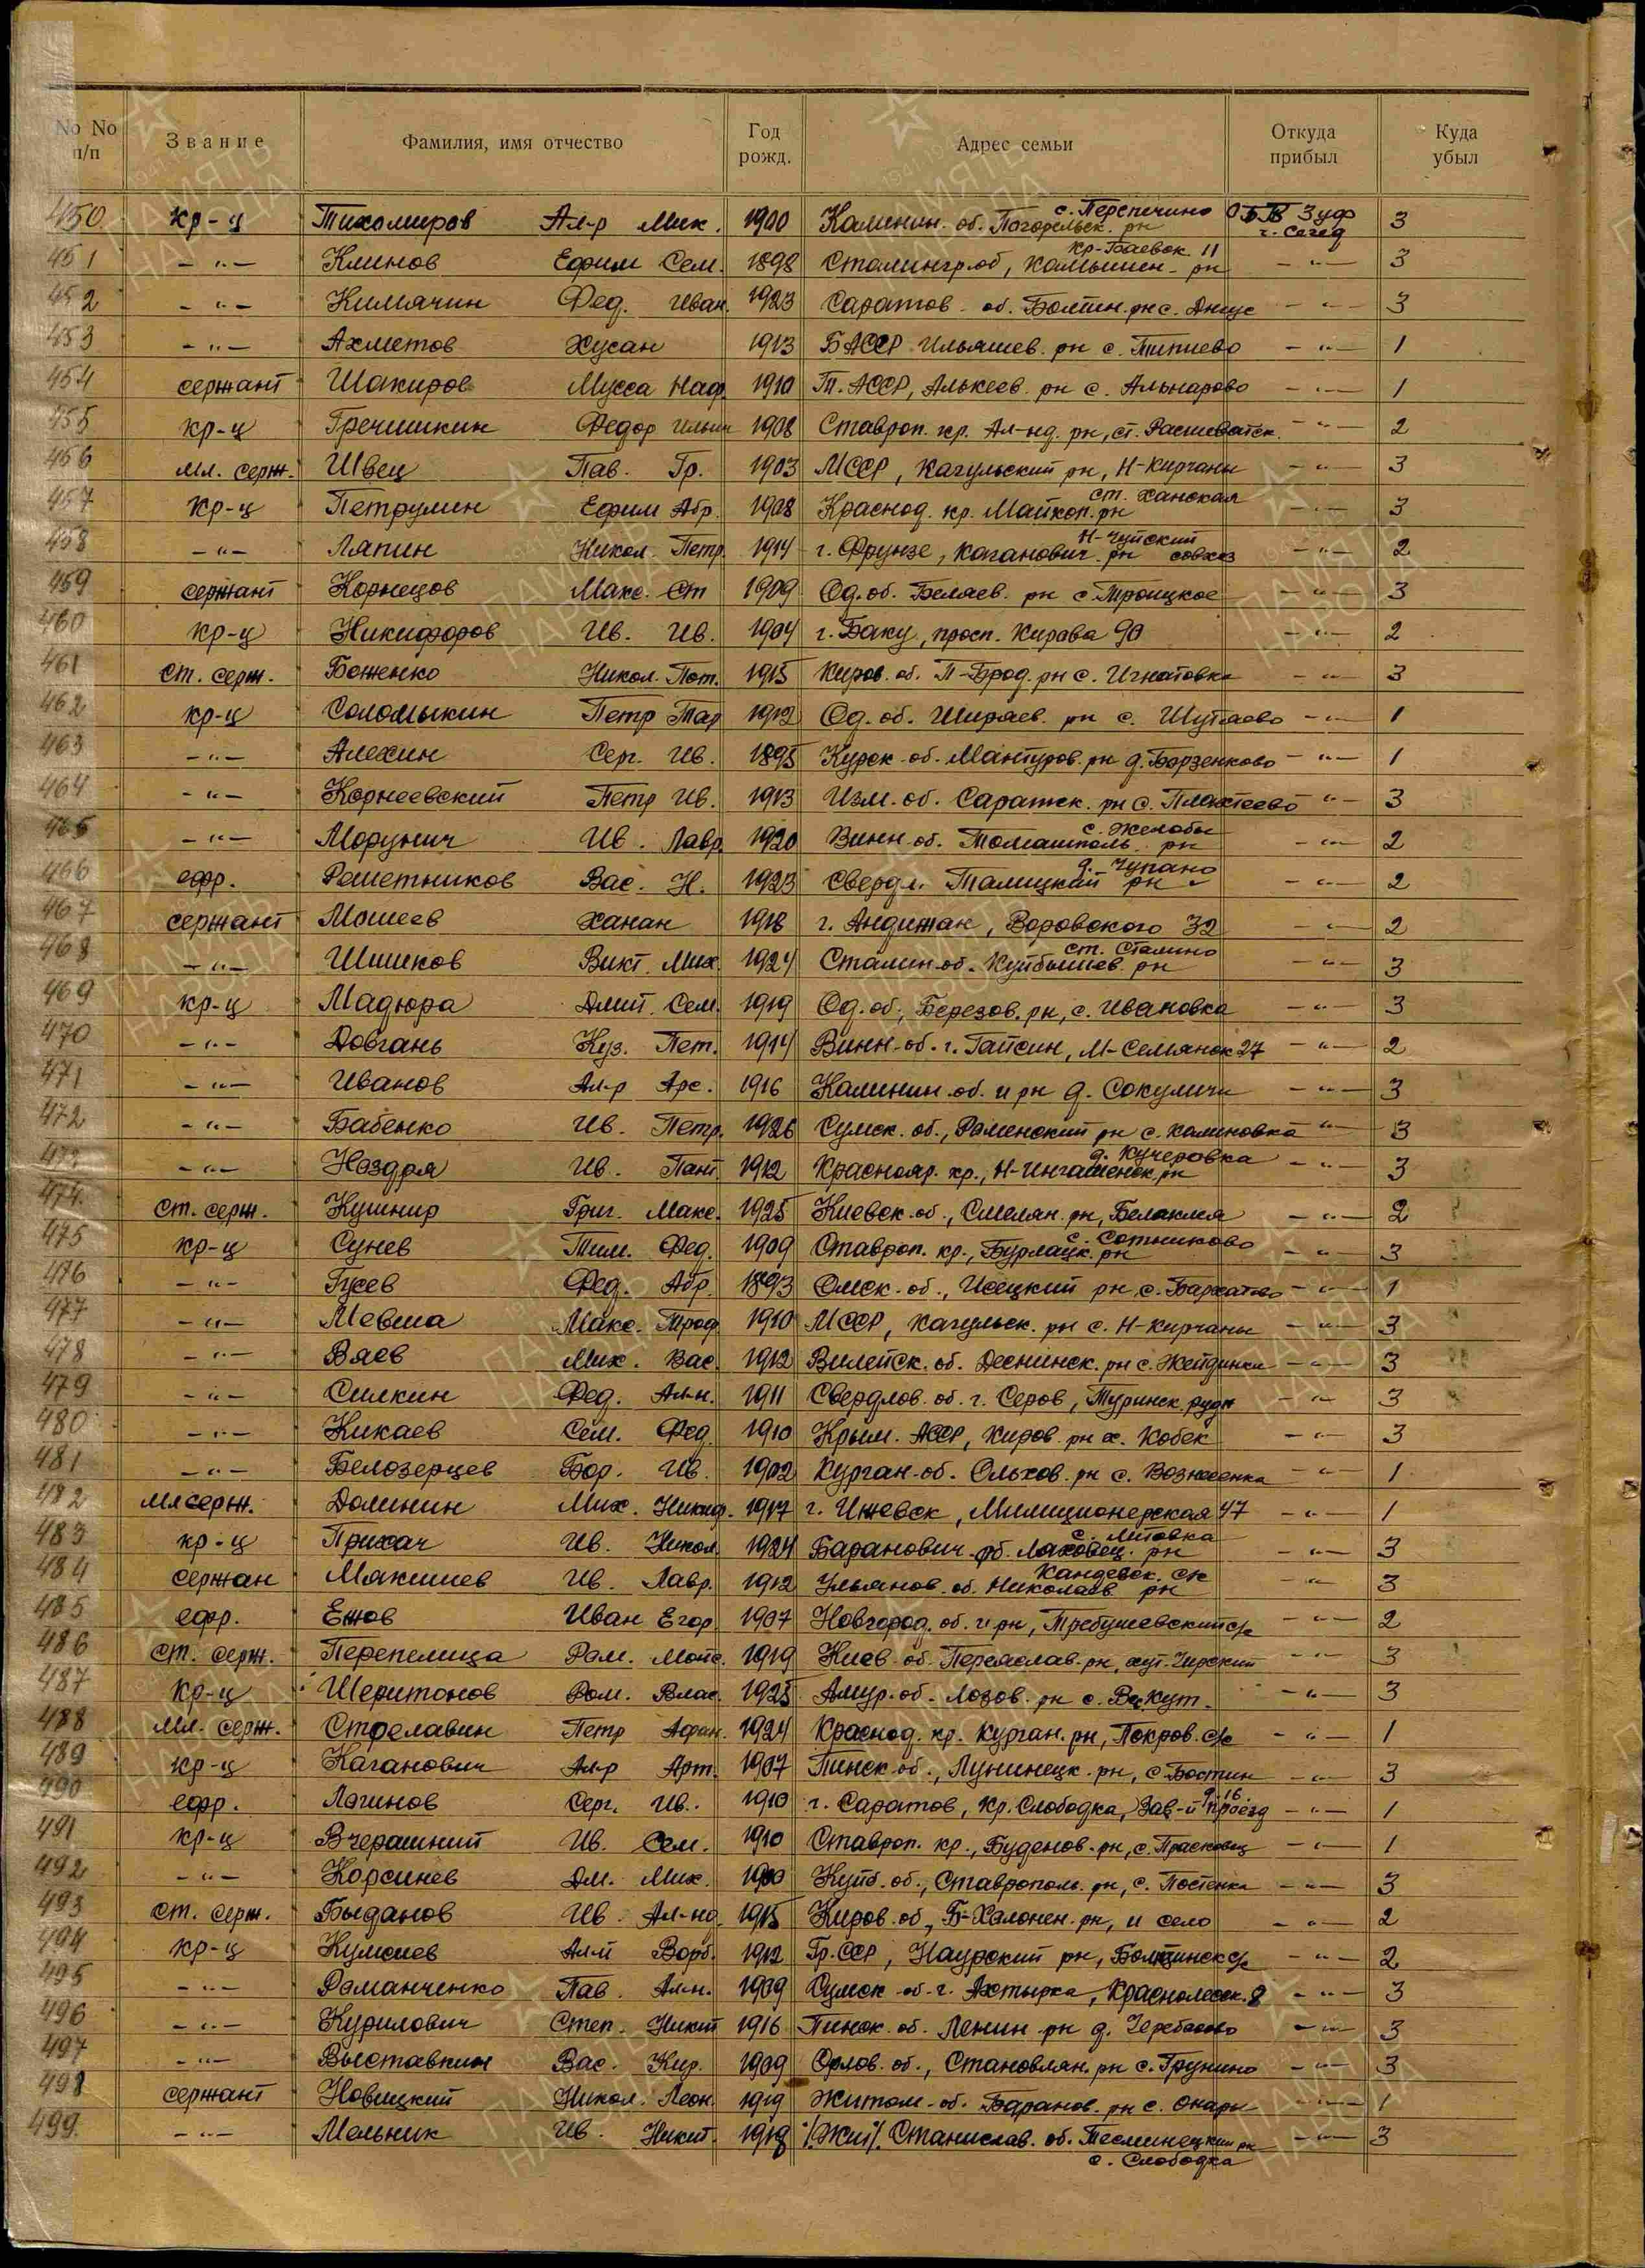 No No п/п Звание Фамилия, имя отчество Год рожд. Адрес семьи Откуда прибыл Куда убыл
450 кр-ц Тихомиров Ал-р Мих. 1900 Калинин. об. Погорельск. рн с. Перепечино ОБВ 3 уф г. Сегед 3
451 -"- Климов Ефим Сем. 1898 Сталингр. об, Камышин. рн кр-Баевок 11 -"- 3
452 -"- Кимячин Фед. Иван. 1923 Саратов. об. рн с. -"- 3
453 -"- Ахметов Хусан 1913 БАССР Ильяшев. рн с. Типиево -"- 1
454 сержант Шакиров Мусса Наф. 1910 Т. АССР, Алькеев. рн с. Альпарово -"- 1
455 кр-ц Гречишкин Федор Ильич 1908 Ставроп. кр. Ал-нд. рн, ст. Расшеватск. -"- 2
456 мл. серж. Швец Пав. Гр. 1903 МССР, Кагульский рн, Н-Кирганы -"- 3
457 кр-ц Петрулин Ефим Абр. 1908 Краснод. кр. Майкоп. рн ст. Ханская -"- 3
458 -"- Ляпин Никол. Петр. 1914 г. Фрунзе, Каганович. рн Н-Чуйский совхоз -"- 2
459 сержант Корнецов Макс. Ст 1909 Од. об. Беляев. рн с. Троицкое -"- 3
460 кр-ц Никифоров Ив. Ив. 1904 г. Баку, просп. Кирова 90 -"- 2
461 ст. серж. Боженко Никол. Пот. 1915 Киров. об. П-Брод. рн с. Игнатовка -"- 3
462 кр-ц Соломыкин Петр Тар 1912 Од. об. Ширяев. рн с. -"- 1
463 -"- Алехин Серг. Ив. 1895 Курск. об. Мантуров. рн д. Борзенково -"- 1
464 -"- Корнеевский Петр Ив. 1913 Изм. об. Саратск. рн с. Плахтеево -"- 3
465 -"- Морунич Ив. Лавр. 1920 Винн. об. Томашполь. рн с. Жолобы -"- 2
466 ефр. Решетников Вас. Н. 1923 Свердл. Талицкий рн д. Чупано -"- 2
467 сержант Мошеев Ханан 1918 г. Андижан, Воровского 32 -"- 2
468 -"- Шишков Викт. Мих. 1924 Сталин. об. Куйбышев. рн ст. Сталино -"- 3
469 кр-ц Мадюра Дмит. Сем. 1919 Од. об., Березов. рн, с. Ивановка -"- 3
470 -"- Довгань Куз. Пет. 1914 Винн. об. г. Гайсин, М-Семянок 27 -"- 2
471 -"- Иванов Ал-р Арс. 1916 Калинин. об. и рн д. Сокуличи -"- 3
472 -"- Бабенко Ив. Петр. 1926 Сумск. об., Роменский рн с. Калиновка -"- 3
473 -"- Ноздря Ив. Пант. 1912 Краснояр. кр., Н-Ингашенск. рн д. Кучеровка -"- 3
474 ст. серж. Кушнир Григ. Макс. 1925 Киевск. об., Смелян. рн, Балаклея -"- 2
475 кр-ц Сунев Тим. Фед. 1909 Ставроп. кр., Бурлацк. рн с. Сотниково -"- 3
476 -"- Гусев Фед. Абр. 1893 Омск. об., Исецкий рн, с. Бархатово -"- 1
477 -"- Мевша Макс. Троф. 1910 МССР, Кагульск. рн с. Н-Кирганы -"- 3
478 -"- Вяев Мих. Вас. 1912 Вилейск. об. Деснинск. рн с. -"- 3
479 -"- Силкин Фед. Ал-н. 1911 Свердлов. об. г. Серов, Туринск. рудн -"- 3
480 -"- Кикаев Сем. Фед. 1910 Крым. АССР, Киров. рн х. Кобек -"- 3
481 -"- Белозерцев Бор. Ив. 1902 Курган. об. Ольхов. рн с. Вознесенка -"- 1
482 мл серж. Долинин Мих. Никиф. 1917 г. Ижевск, Милиционерская 47 -"- 1
483 кр-ц Прихач Ив. Никол. 1924 Баранович. об. Ляховец. рн с. Литовка -"- 3
484 сержан Макшиев Ив. Лавр. 1912 Ульянов. об. Николаев. рн Кандевск. с/с -"- 3
485 ефр. Ежов Иван Егор. 1907 Новгород. об. и рн, Требушевский с/с -"- 2
486 ст. серж. Перепелица Ром. Моис. 1919 Киев. об. Переяслав. рн, хут. -"- 3
487 кр-ц Шеритонов Ром. Влас. 1925 Амур. об. Лозов. рн с. -"- 3
488 мл. серж. Стрелавин Петр Афан. 1924 Краснод. кр. Курган. рн, Покров. с/с -"- 1
489 кр-ц Каганович Ал-р Арт. 1907 Пинск. об., Лунинецк. рн, с. Бостин -"- 3
490 ефр. Логинов Серг. Ив. 1910 г. Саратов, Кр. Слободка, Зав-й проезд д. 16 -"- 1
491 кр-ц Вчерашний Ив. Сем. 1910 Ставроп. кр., Буденов. рн, с. Прасковец -"- 1
492 -"- Корсинев Дм. Мих. 1900 Куйб. об., Ставрополь. рн, с. Постенка -"- 3
493 ст. серж. Быданов Ив. Ал-нд. 1915 Киров. об, Б-Халонен. рн, и село -"- 2
494 кр-ц Кумсиев Ал-й Ворб. 1912 Гр. ССР, Наурский рн, с/с -"- 2
495 -"- Романченко Пав. Ал-н. 1909 Сумск. об. г. Ахтырка, -"- 3
496 -"- Курилович Степ. Никит 1916 Пинск. об. Ленин. рн д. Черебасово -"- 3
497 -"- Выставкин Вас. Кир. 1909 Орлов. об., Становлян. рн с. Грунино -"- 3
498 сержант Новицкий Никол. Леон. 1919 Житом. об. Баранов. рн с. -"- 1
499. -"- Мельник Ив. Никит. 1918 Станислав. об. рн -"- 3
с. Слободка